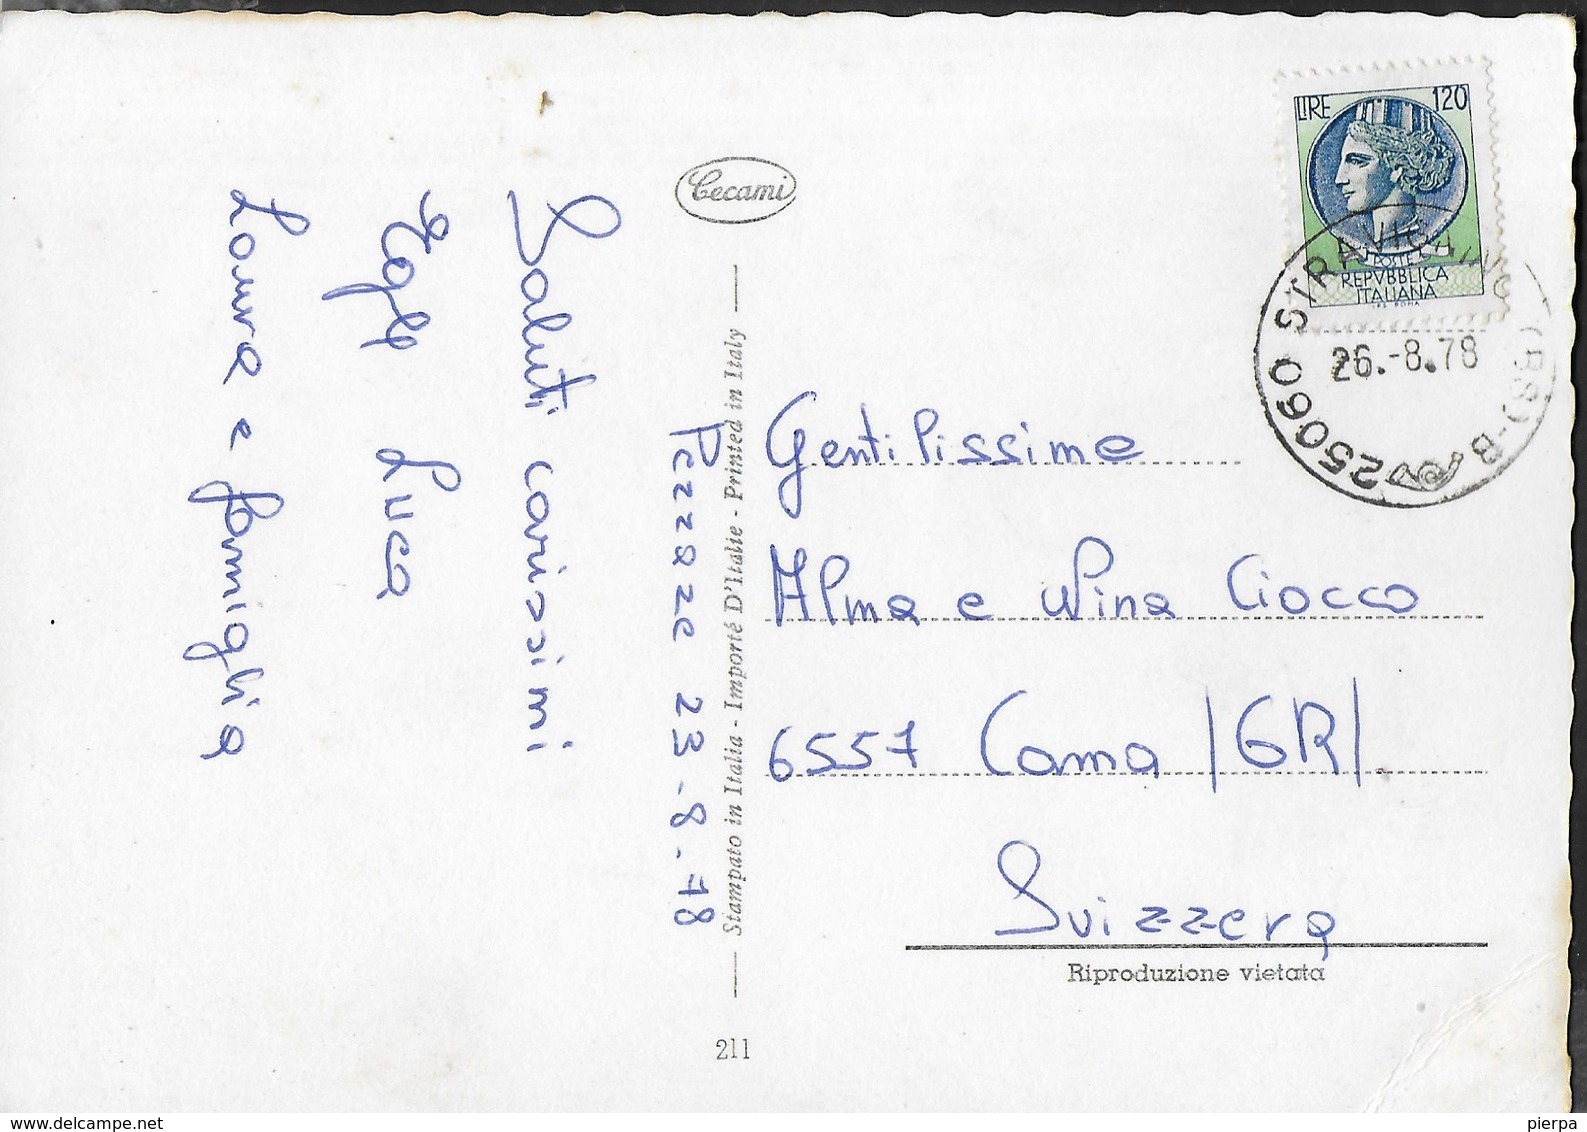 Cecami
LIRE 120
POSTE
REPVBBLICA
ITALIANA
25060 STRAVIGNINO (BS) - B
26.-8.78
Pezzaze 23-8-78
Saluti carissimi
Luca
Laura e famiglia
Stampato in Italia - Importé D'Italie - Printed in Italy
Gentilissime
Alma e Nina Ciocco
6557 Cama /GR/
Svizzera
Riproduzione vietata
211
www.delcampe.net
pierpa